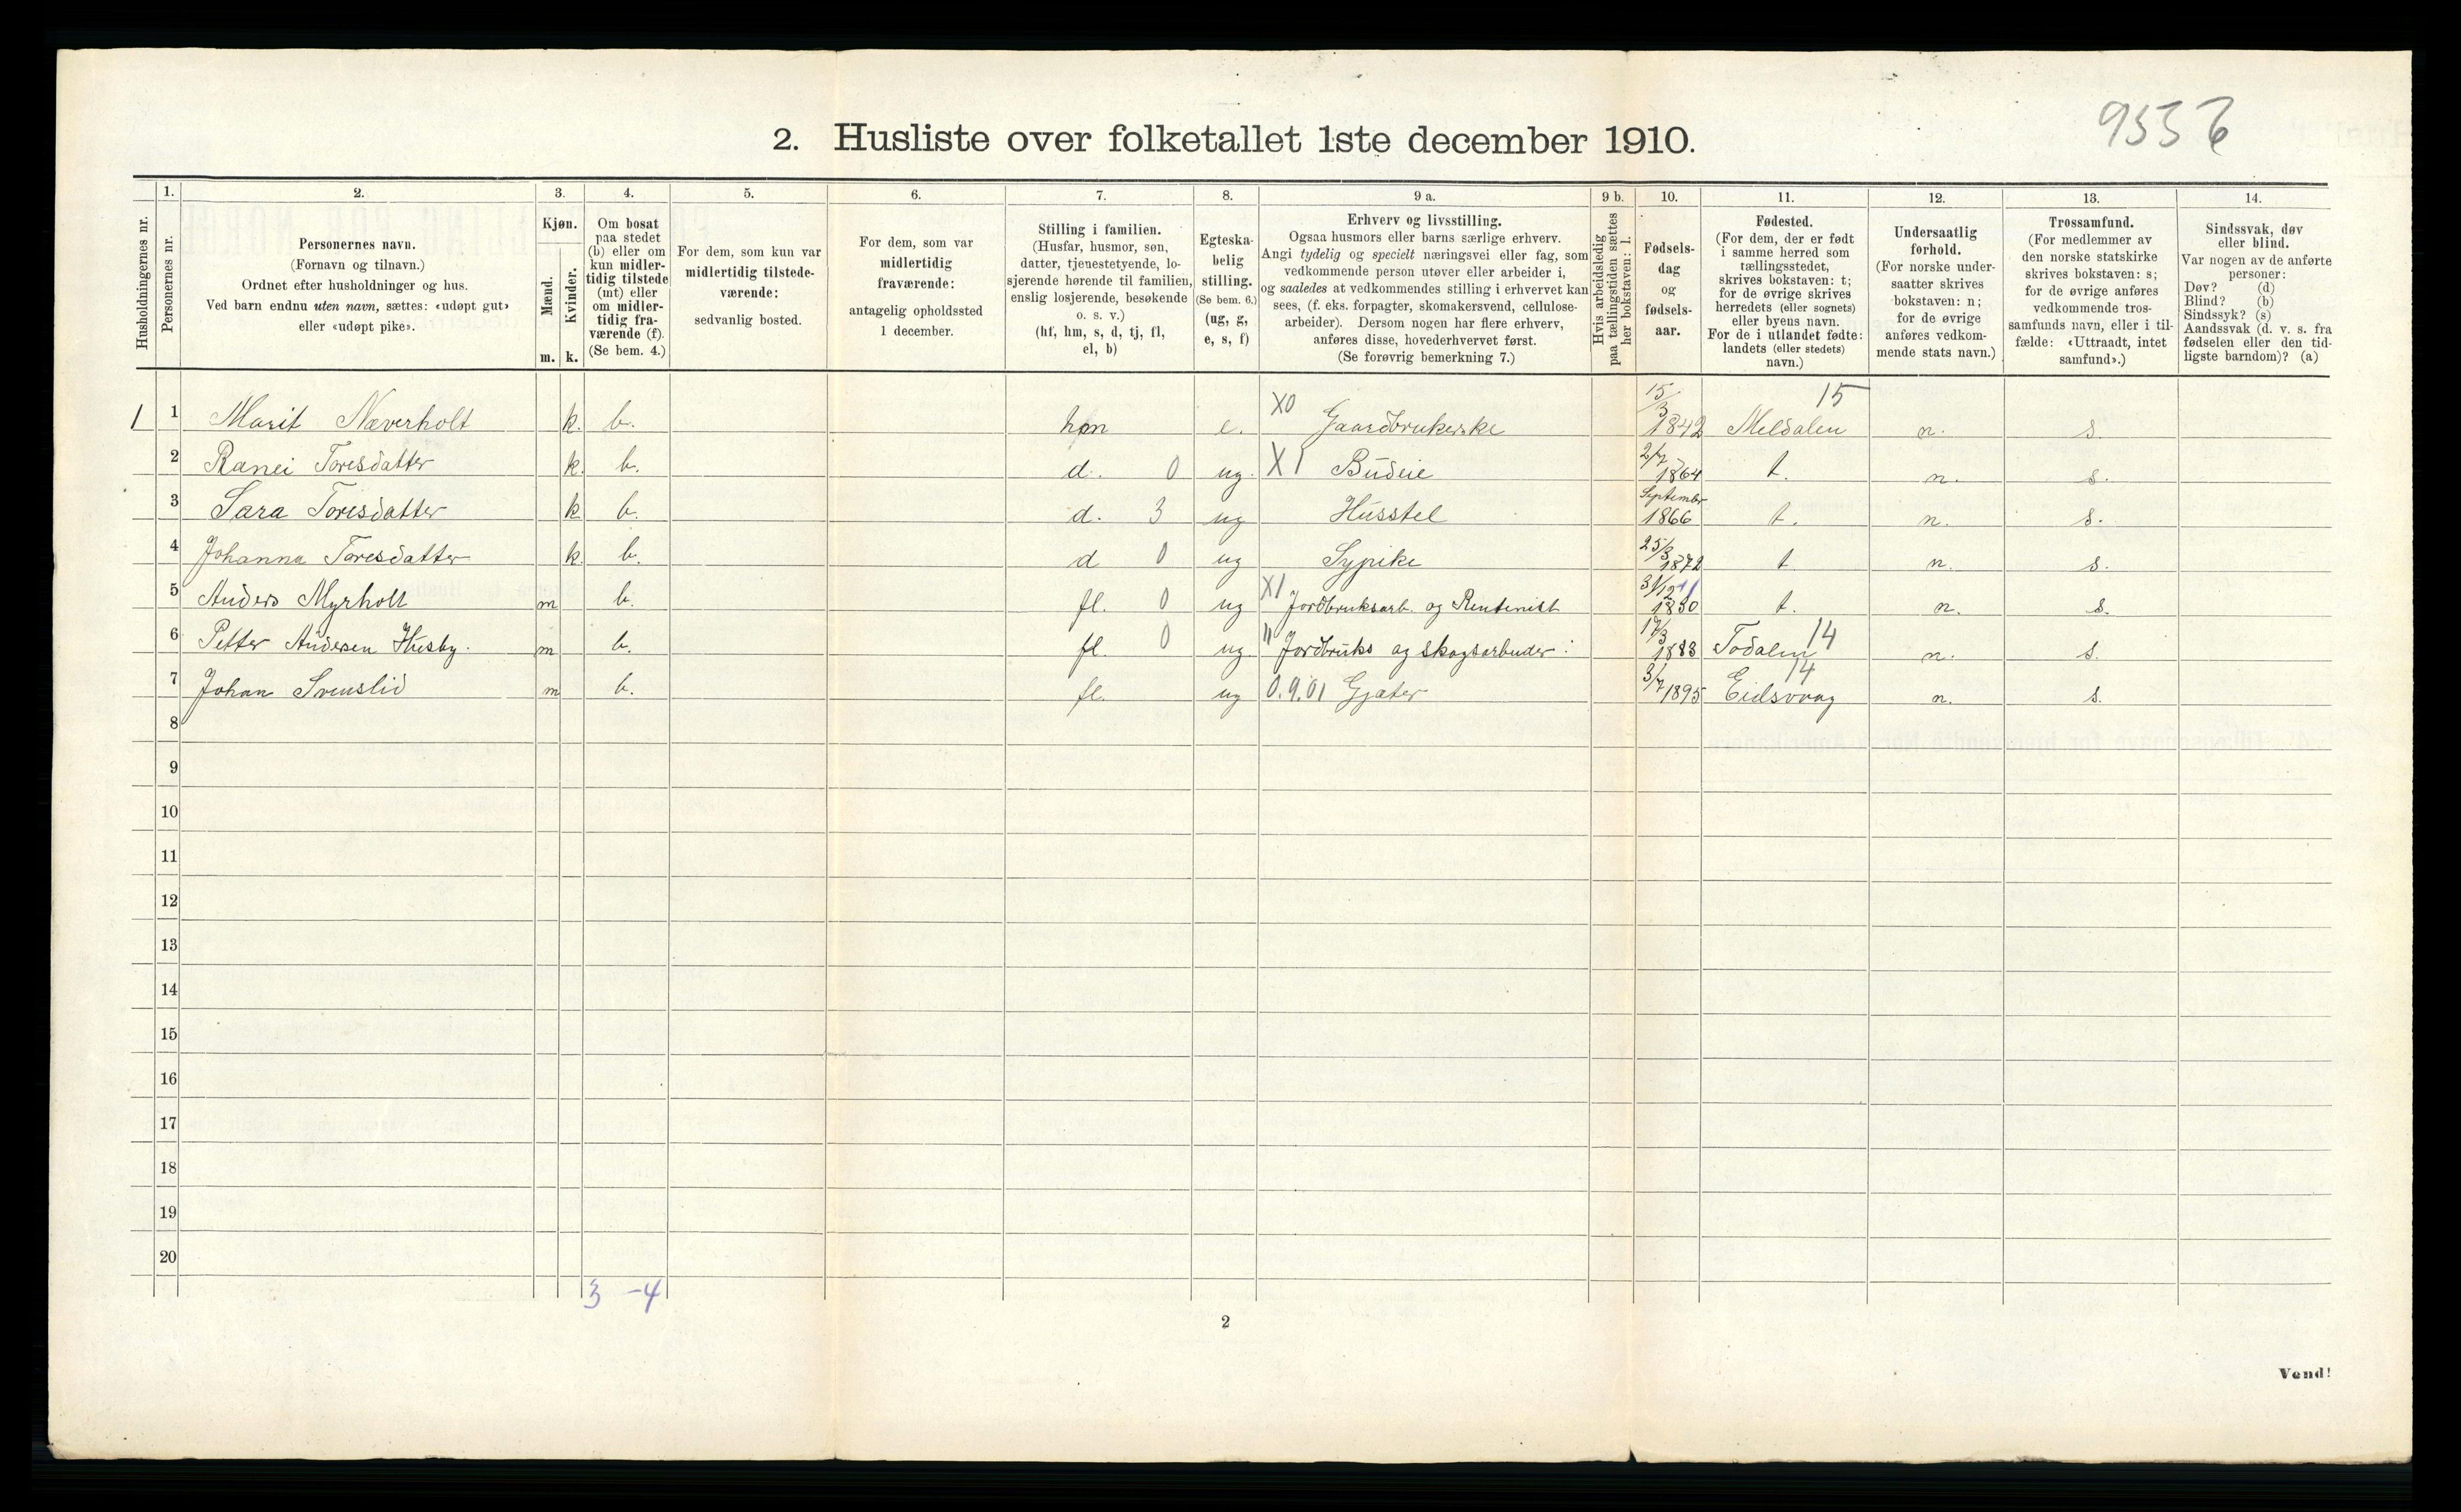 9556
2. Husliste over folketallet 1ste december 1910.
Husholdningernes nr.
1.
Personernes nr.
2.
Personernes navn.
(Fornavn og tilnavn.)
Ordnet efter husholdninger og hus.
Ved barn endnu uten navn, sættes: «udøpt gut»
eller «udøpt pike».
3.
Kjøn.
Mænd.
Kvinder.
m. k.
4.
Om bosat
paa stedet
(b) eller om
kun midler-
tidig tilstede
(mt) eller
om midler-
tidig fra-
værende (f).
(Se bem. 4.)
5.
For dem, som kun var
midlertidig tilstede-
værende:
sedvanlig bosted.
6.
For dem, som var
midlertidig
fraværende:
antagelig opholdssted
1 december.
7.
Stilling i familien.
(Husfar, husmor, søn,
datter, tjenestetyende, lo-
sjerende hørende til familien,
enslig losjerende, besøkende
o. s. v.)
(hf, hm, s, d, tj, fl,
el, b)
8.
Egteska-
belig
stilling.
(Se bem. 6.)
(ug, g,
e, s, f)
9 a.
Erhverv og livsstilling.
Ogsaa husmors eller barns særlige erhverv.
Angi tydelig og specielt næringsvei eller fag, som
vedkommende person utøver eller arbeider i,
og saaledes at vedkommendes stilling i erhvervet kan
sees, (f. eks. forpagter, skomakersvend, cellulose-
arbeider). Dersom nogen har flere erhverv,
anføres disse, hovederhvervet først.
(Se forøvrig bemerkning 7.)
9 b.
Hvis arbeidsledig
paa tællingstiden sættes
her bokstaven: l.
10.
Fødsels-
dag
og
fødsels-
aar.
11.
Fødested.
(For dem, der er født
i samme herred som
tællingsstedet,
skrives bokstaven: t;
for de øvrige skrives
herredets (eller sognets)
eller byens navn.
For de i utlandet fødte:
landets (eller stedets)
navn.)
12.
Undersaatlig
forhold.
(For norske under-
saatter skrives
bokstaven: n;
for de øvrige
anføres vedkom-
mende stats navn.)
13.
Trossamfund.
(For medlemmer av
den norske statskirke
skrives bokstaven: s;
for de øvrige anføres
vedkommende tros-
samfunds navn, eller i til-
fælde: «Uttraadt, intet
samfund».)
14.
Sindssvak, døv
eller blind.
Var nogen av de anførte
personer:
Døv? (d)
Blind? (b)
Sindssyk? (s)
Aandssvak (d. v. s. fra
fødselen eller den tid-
ligste barndom)? (a)
1 1 Marit Næverholt k. b. hm e. X0 Gaardbrukerske 15/3 1842 Meldalen 15 n. s.
2 Ranei Toresdatter k. b. d. 0 ug. X1 Budeie 2/7 1864 t. n. s.
3 Sara Toresdatter k b. d. 3 ug Husstel September 1866 t. n. s.
4 Johanna Toresdatter k. b. d 0 ug Sypike 25/3 1872 t n. s.
5 Anders Myrholt m b. fl. 0 ug X1 Jordbruksarb. og Rentenist 31/12 1830 t. n. s.
6 Petter Andersen Husby. m b. fl. 0 ug " Jordbruks og skogsarbeider 17/3 1883 Todalen 14 n. s.
7 Johan Svenslid m b. fl. ug 0.9.01 Gjæter 3/7 1895 Eidsvaag 14 n. s.
8
9
10
11
12
13
14
15
16
17
18
19
20
3 -4
2
Vend!